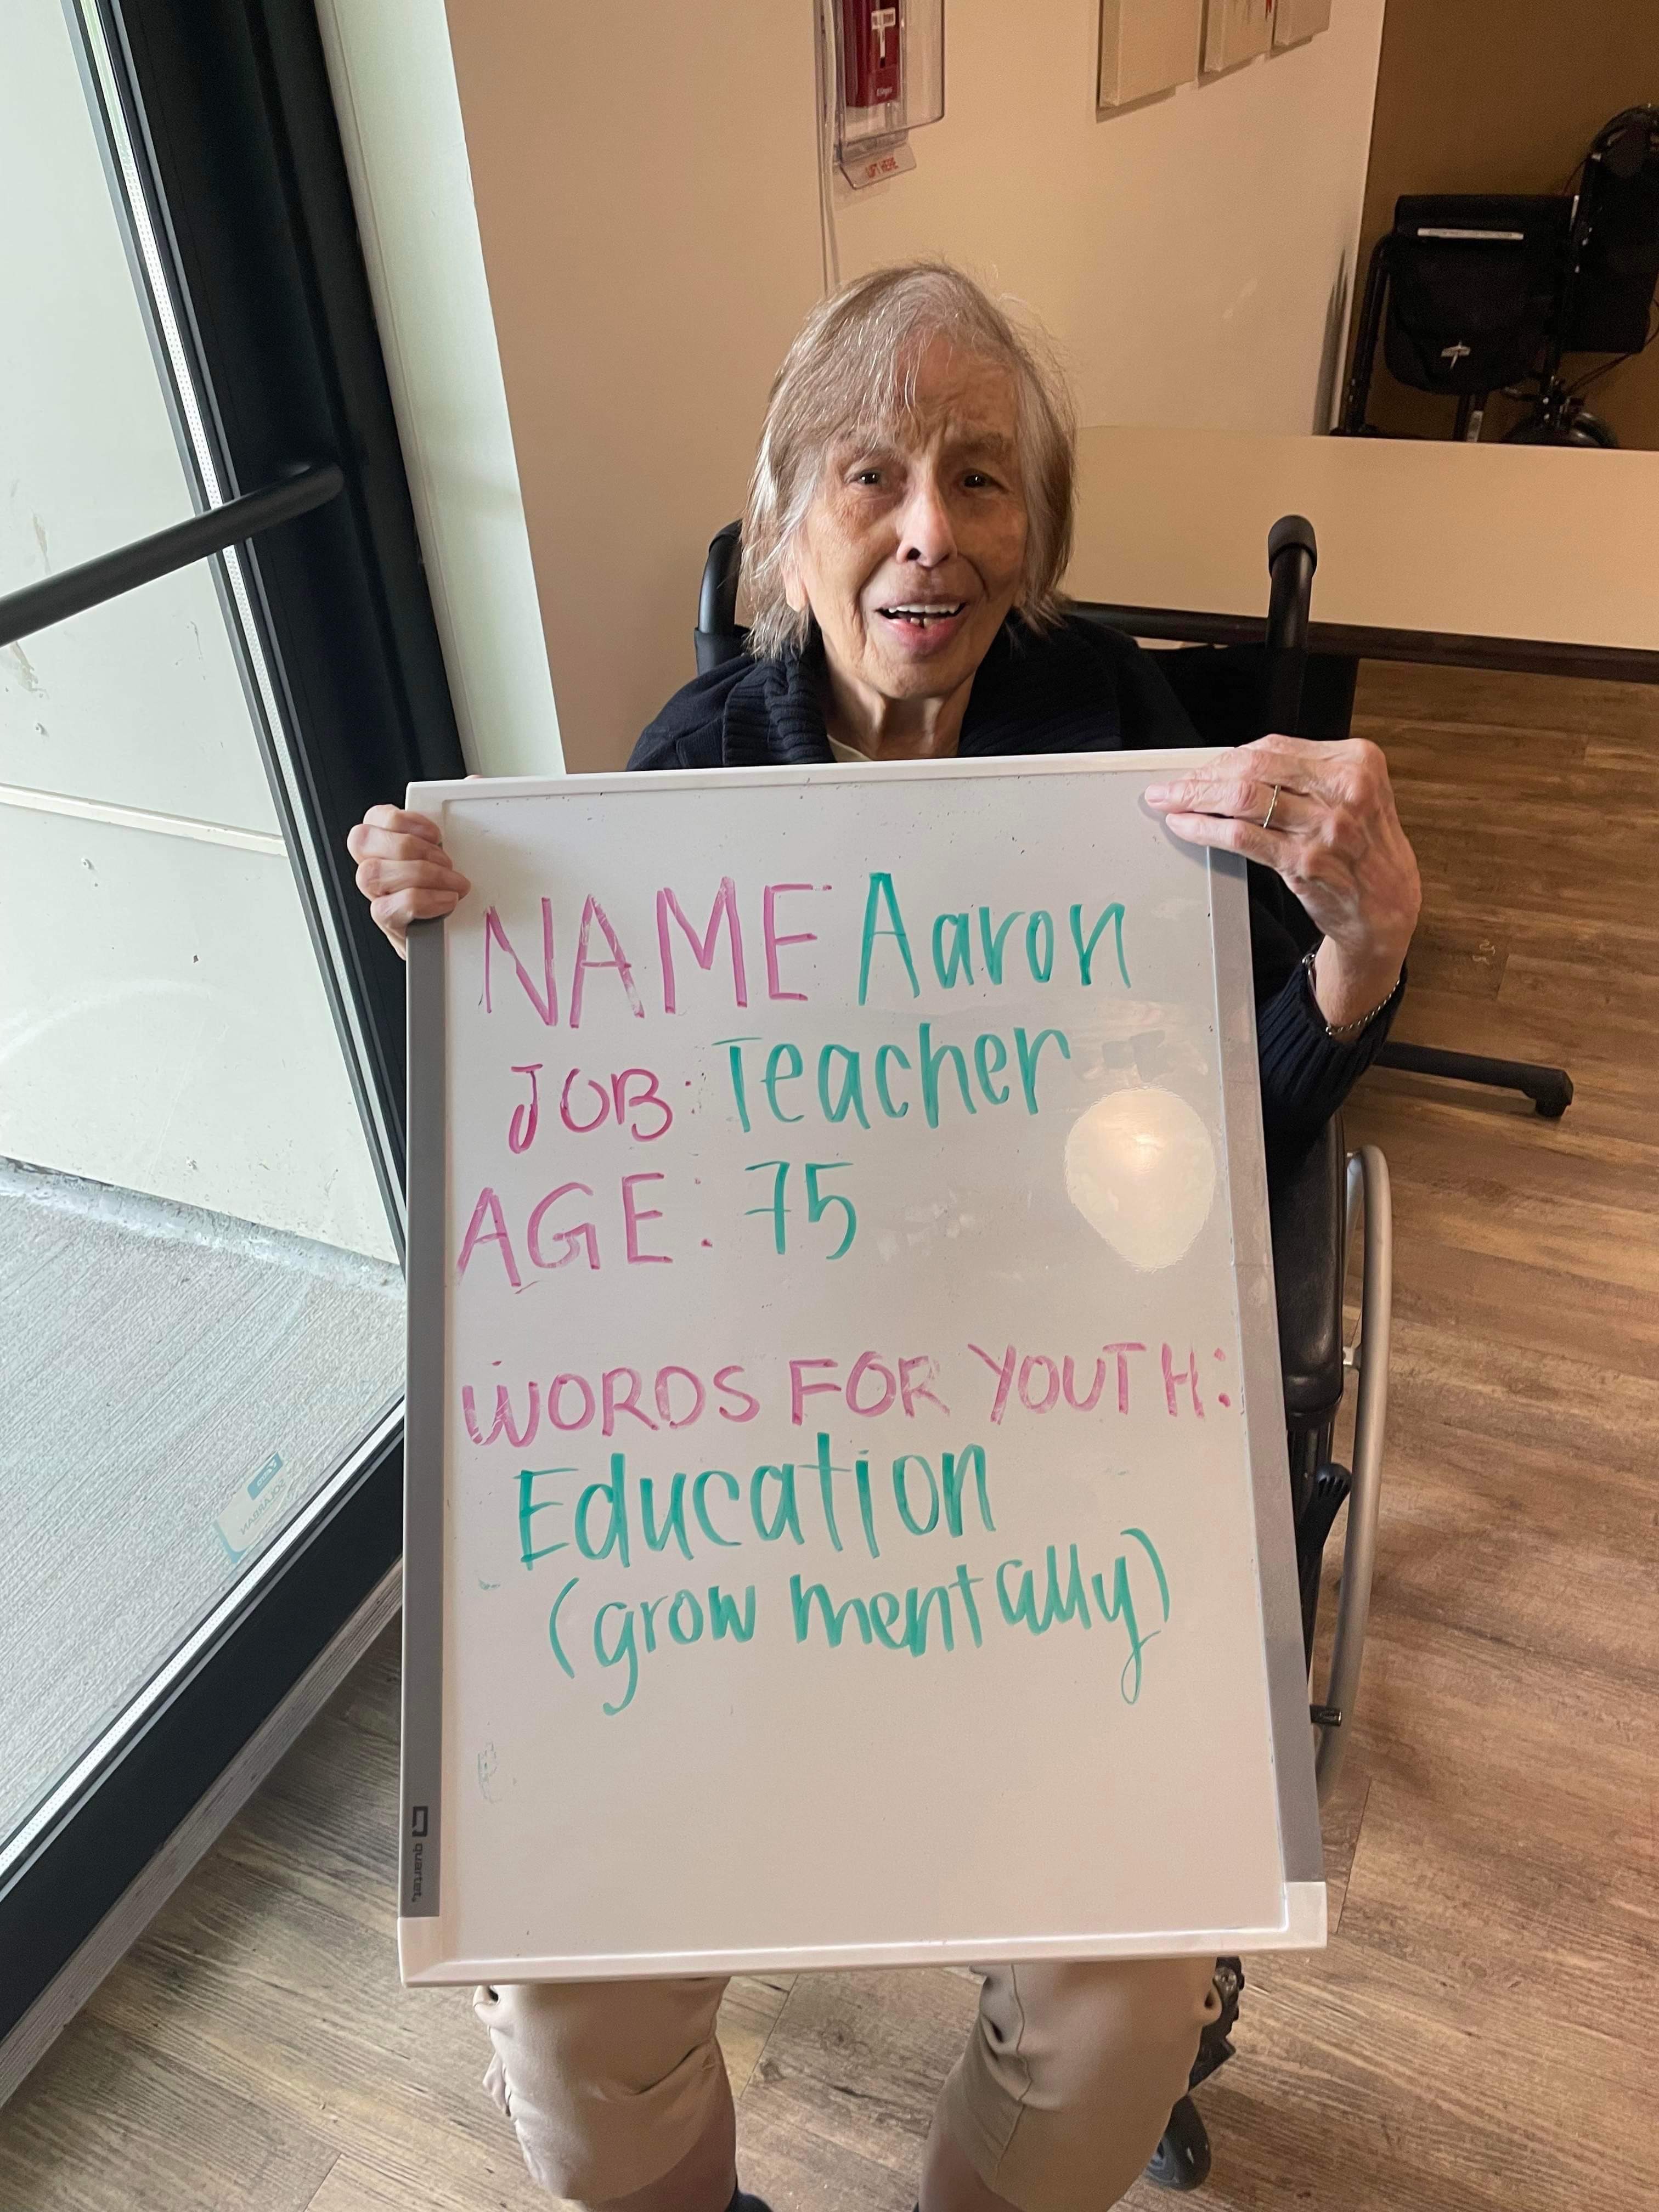 LIFT HERE
NAME Aaron
JOB: Teacher
AGE: 75
WORDS FOR YOUTH:
Education
(grow mentally)
quartet